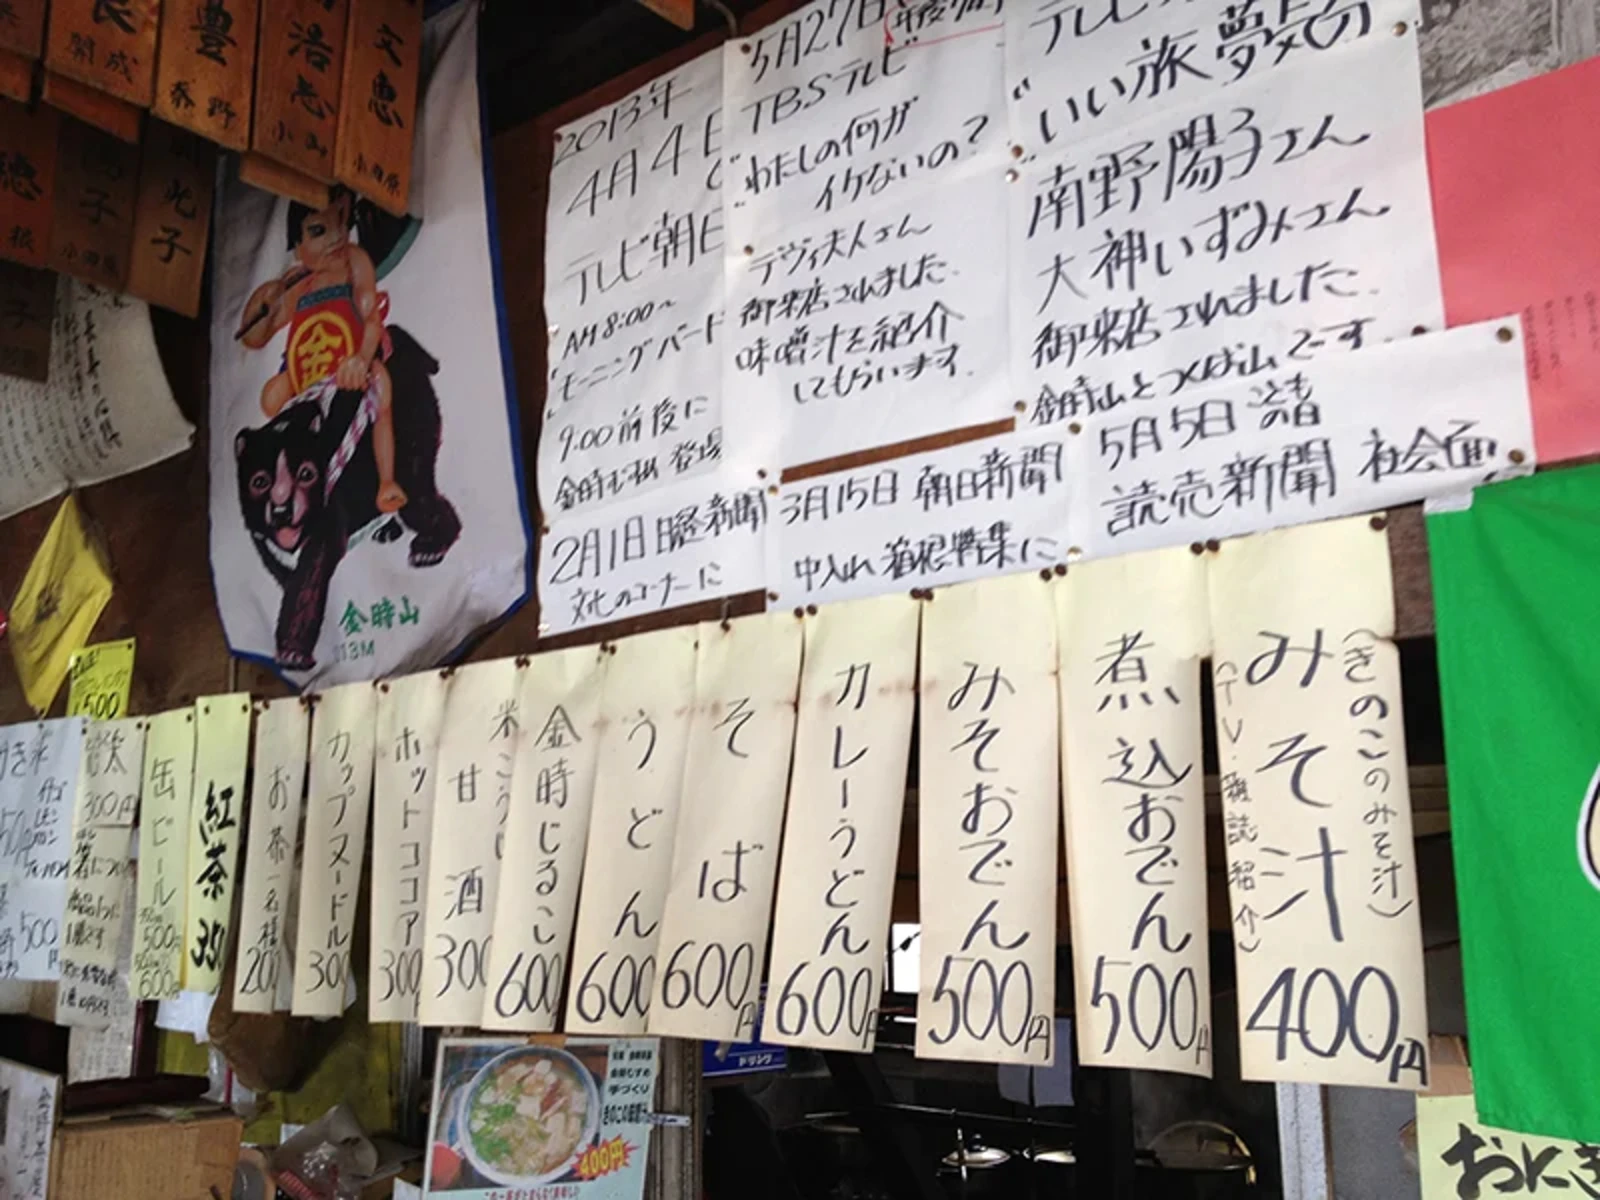 良
開成
豊
秦野
浩志
小山
文恵
小田原
子
小田原
子
根
金
金時山
13M
2013年
4月4日
テレビ朝日
AM8:00~
"モーニングバード
9:00前後に
金時むすめ 登場
5月27日
TBSテレビ
"わたしの何が
イケないの?
デヴィ夫人さん
御来店されました
味噌汁を紹介
してもらいます.
"いい旅夢気分
"南野陽子さん
大神いずみさん
御来店されました.
金時山とつくば山です.
2月1日 日経新聞
文化のコーナーに
3月15日 朝日新聞
中入れ 箱根特集に
5月5日 こどもの日
読売新聞 社会面
¥500
500円
300円
缶ビール
500円
600円
紅茶
お茶一名様
200
カップヌードル
300
ホットココア
300
米こうじ
甘酒
300
金時じるこ
600
うどん
600
そば
600円
カレーうどん
600円
みそおでん
500円
煮込おでん
500円
(きのこのみそ汁)
みそ汁
(TV.雑誌紹介)
400円
手づくり
400円
ドリンク
おにぎ